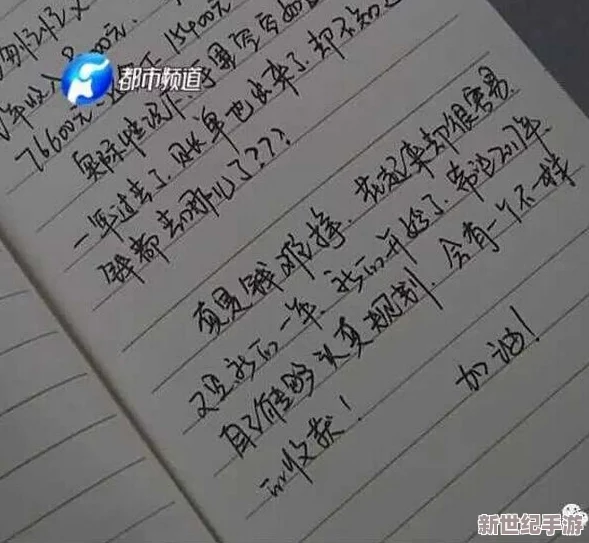 年收入9 000元 15400元
都市频道
76600元
实际情况下,手里经常
一年过去了,账单也出来了,却不知道
钱都去哪儿了???
真是钱难挣,花起来却很容易
又是新的一年,新的开始了,希望2017年
自己能够认真规划,会有一个不一样
的收获! 加油!
新世纪手游